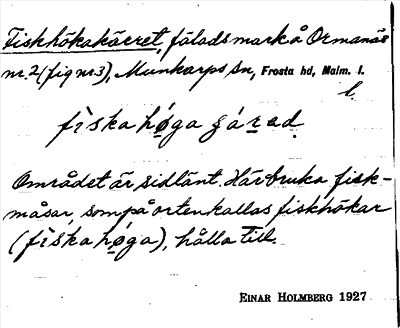 Fiskhökakärret, fäladsmark å Ormanäs
nr. 2 (fig nr 3), Munkarps sn, Frosta hd, Malm. l.
l.
fiskahøga
Området är sidlänt. Här bruka fisk-
måsar, som på orten kallas fiskhökar
(fiskahøga), hålla till.
EINAR HOLMBERG 1927